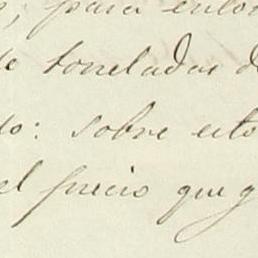 para
de toneladas d
do: sobre esto
el precio que g